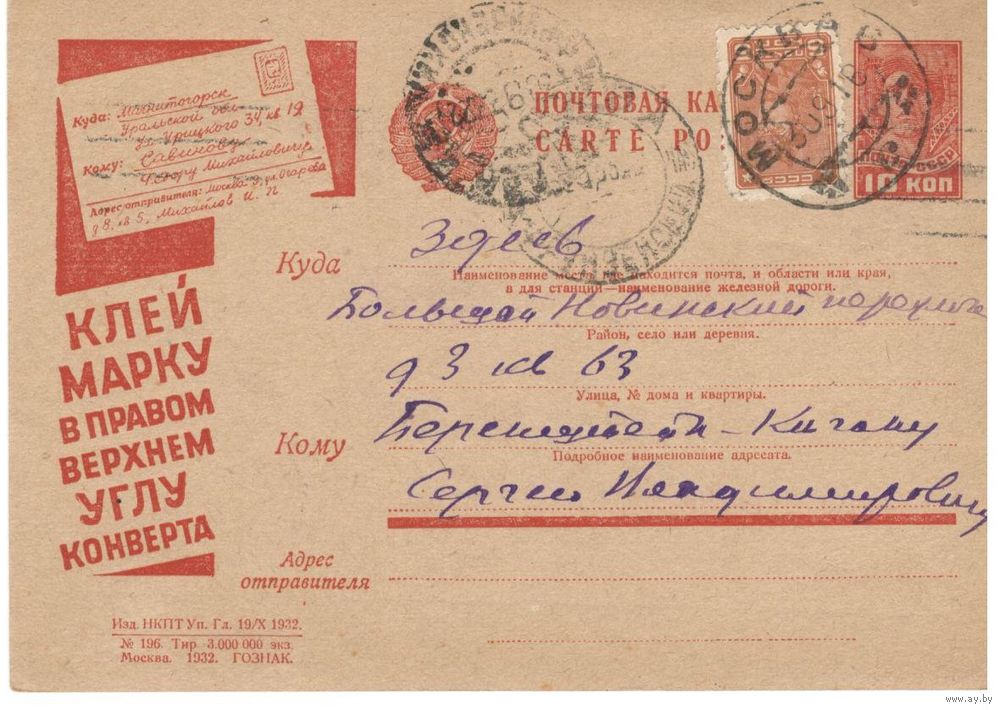 Куда: Магнитогорск
Уральской обл.
ул. Урицкого 34, кв 19
Кому: Савинову
Федору Михайловичу
Адрес отправителя: Москва 9, ул. Огарева
д 8, кв 5, Михайлов И. П
ПОЧТОВАЯ КА
CARTE PO
МОСКВА
ПОЧТА СССР
10 КОП
КЛЕЙ
МАРКУ
В ПРАВОМ
ВЕРХНЕМ
УГЛУ
КОНВЕРТА
Куда Здесь
Наименование места, где находится почта, и области или края,
а для станций—наименование железной дороги.
Большой Новинский
Район, село или деревня.
д 3 кв 63
Улица, № дома и квартиры.
Кому
Подробное наименование адресата.
Сергею
Адрес
отправителя
Изд. НКПТ Уп. Гл. 19/X 1932.
№ 196. Тир 3.000 000 экз.
Москва. 1932. ГОЗНАК.
www.ay.by